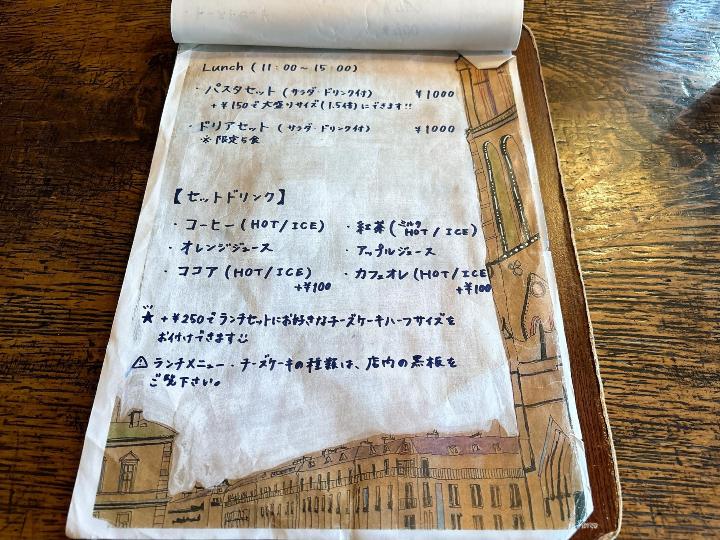 Lunch (11:00〜15:00)
・パスタセット (サラダ・ドリンク付) ¥1000
+¥150で大盛りサイズ(1.5倍)にできます!!
・ドリアセット (サラダ・ドリンク付) ¥1000
※限定5食
【セットドリンク】
・コーヒー(HOT/ICE) ・紅茶(ミルク HOT/ICE)
・オレンジジュース ・アップルジュース
・ココア(HOT/ICE) +¥100 ・カフェオレ(HOT/ICE) +¥100
★ +¥250でランチセットにお好きなチーズケーキハーフサイズを
お付けできます
⚠ ランチメニュー・チーズケーキの種類は、店内の黒板を
ご覧下さい。